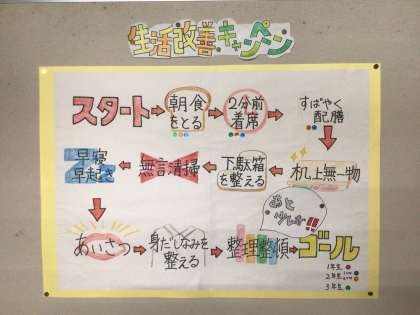 生活改善キャンペーン
スタート
朝食
をとる
2分前
着席
すばやく
配膳
机上無一物
下駄箱
を整える
無言清掃
早寝
早起き
あいさつ
身だしなみを
整える
整理整頓
ゴール
あと
少しだ!!
1年生
2年生
3年生